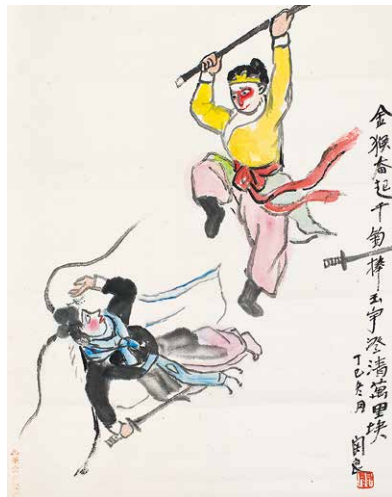 金猴奋起千鈞棒玉宇澄清萬里埃
丁巳冬月
関良